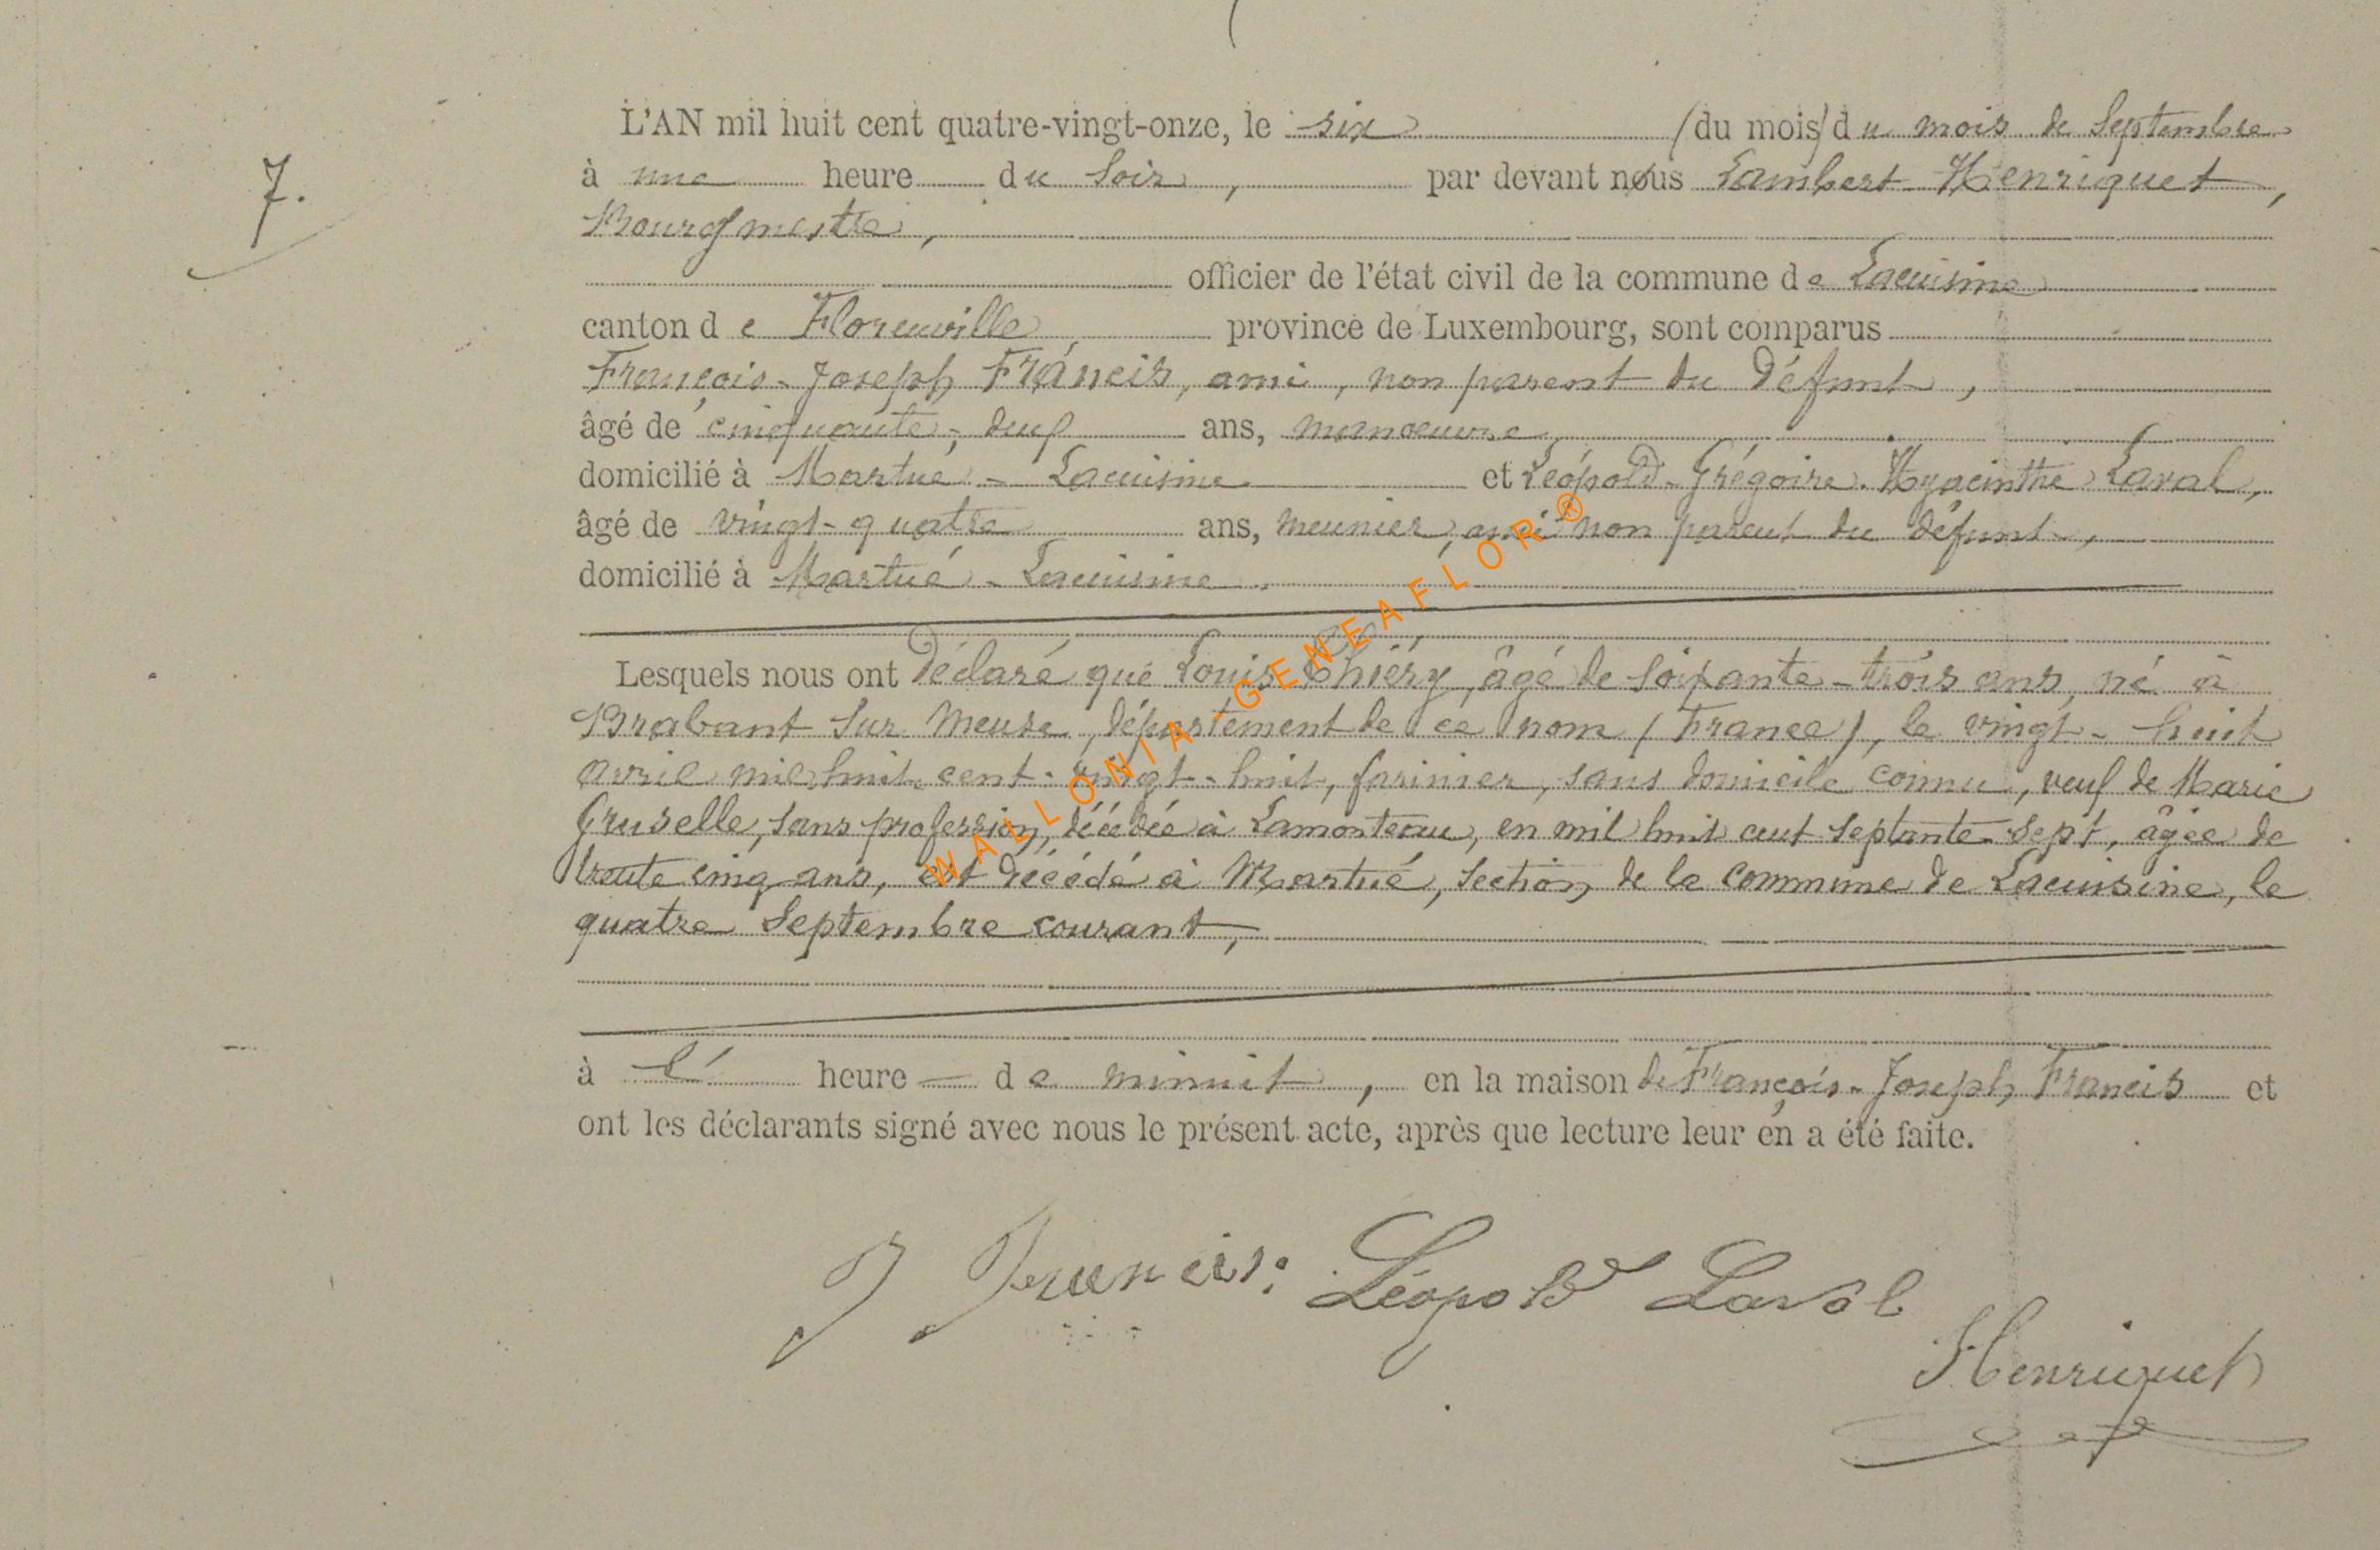 7.
L'AN mil huit cent quatre-vingt-onze, le six (du mois) du mois de Septembre
à une heure du Soir, par devant nous Lambert Henriquet,
Bourgmestre,
officier de l'état civil de la commune de Lacuisine
canton de Florenville province de Luxembourg, sont comparus
François-Joseph Francis, ami, non parent du défunt,
âgé de cinquante-deux ans, manoeuvre,
domicilié à Martué-Lacuisine et Léopold-Grégoire-Hyacinthe Laval,
âgé de vingt-quatre ans, meunier, ami non parent du défunt,
domicilié à Martué-Lacuisine.
Lesquels nous ont déclaré que Louis Thiéry, âgé de soixante-trois ans, né à
Brabant sur Meuse, département de ce nom (France), le vingt-huit
avril mil huit cent-vingt-huit, farinier, sans domicile connu, veuf de Marie
Gruselle, sans profession, décédée à Lamonteau, en mil huit cent septante-sept, âgée de
trente cinq ans, est décédé à Martué, section de la commune de Lacuisine, le
quatre Septembre courant,
à l' heure — de minuit, en la maison de François-Joseph Francis et
ont les déclarants signé avec nous le présent acte, après que lecture leur en a été faite.
J Francis. Léopold Laval
Henriquet
WALLONIA-GENEAFLOR®